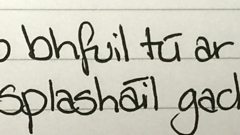 bhfuil tú ar
splasháil gac